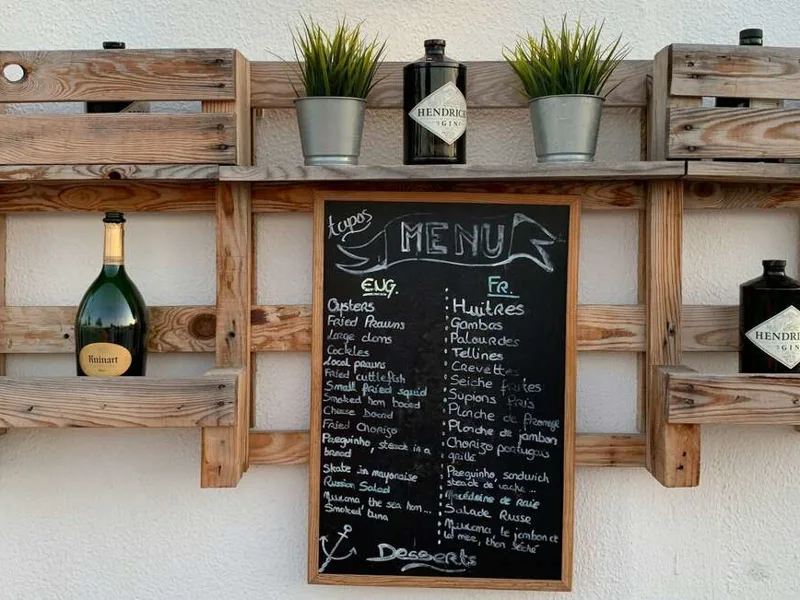 HENDRICK'S
GIN
Ruinart
HENDRIC
GIN
tapas
MENU
ENG.
Oysters
Fried Prawns
Large clams
Cockles
Local prawns
Fried cuttlefish
Small fried squid
Smoked ham board
Cheese board
Fried Chorizo
Preguinho, steack in a
bread
Skate in mayonaise
Russian Salad
Muxama the sea ham...
Smoked tuna
FR.
Huitres
Gambas
Palourdes
Tellines
Crevettes
Seiche frites
Supions fris
Planche de fromage
Planche de jambon
Chorizo portugais
grillé
Preguinho, sandwich
steack de vache...
de raie
Salade Russe
Muxama le jambon de
la mer, thon séché
Desserts